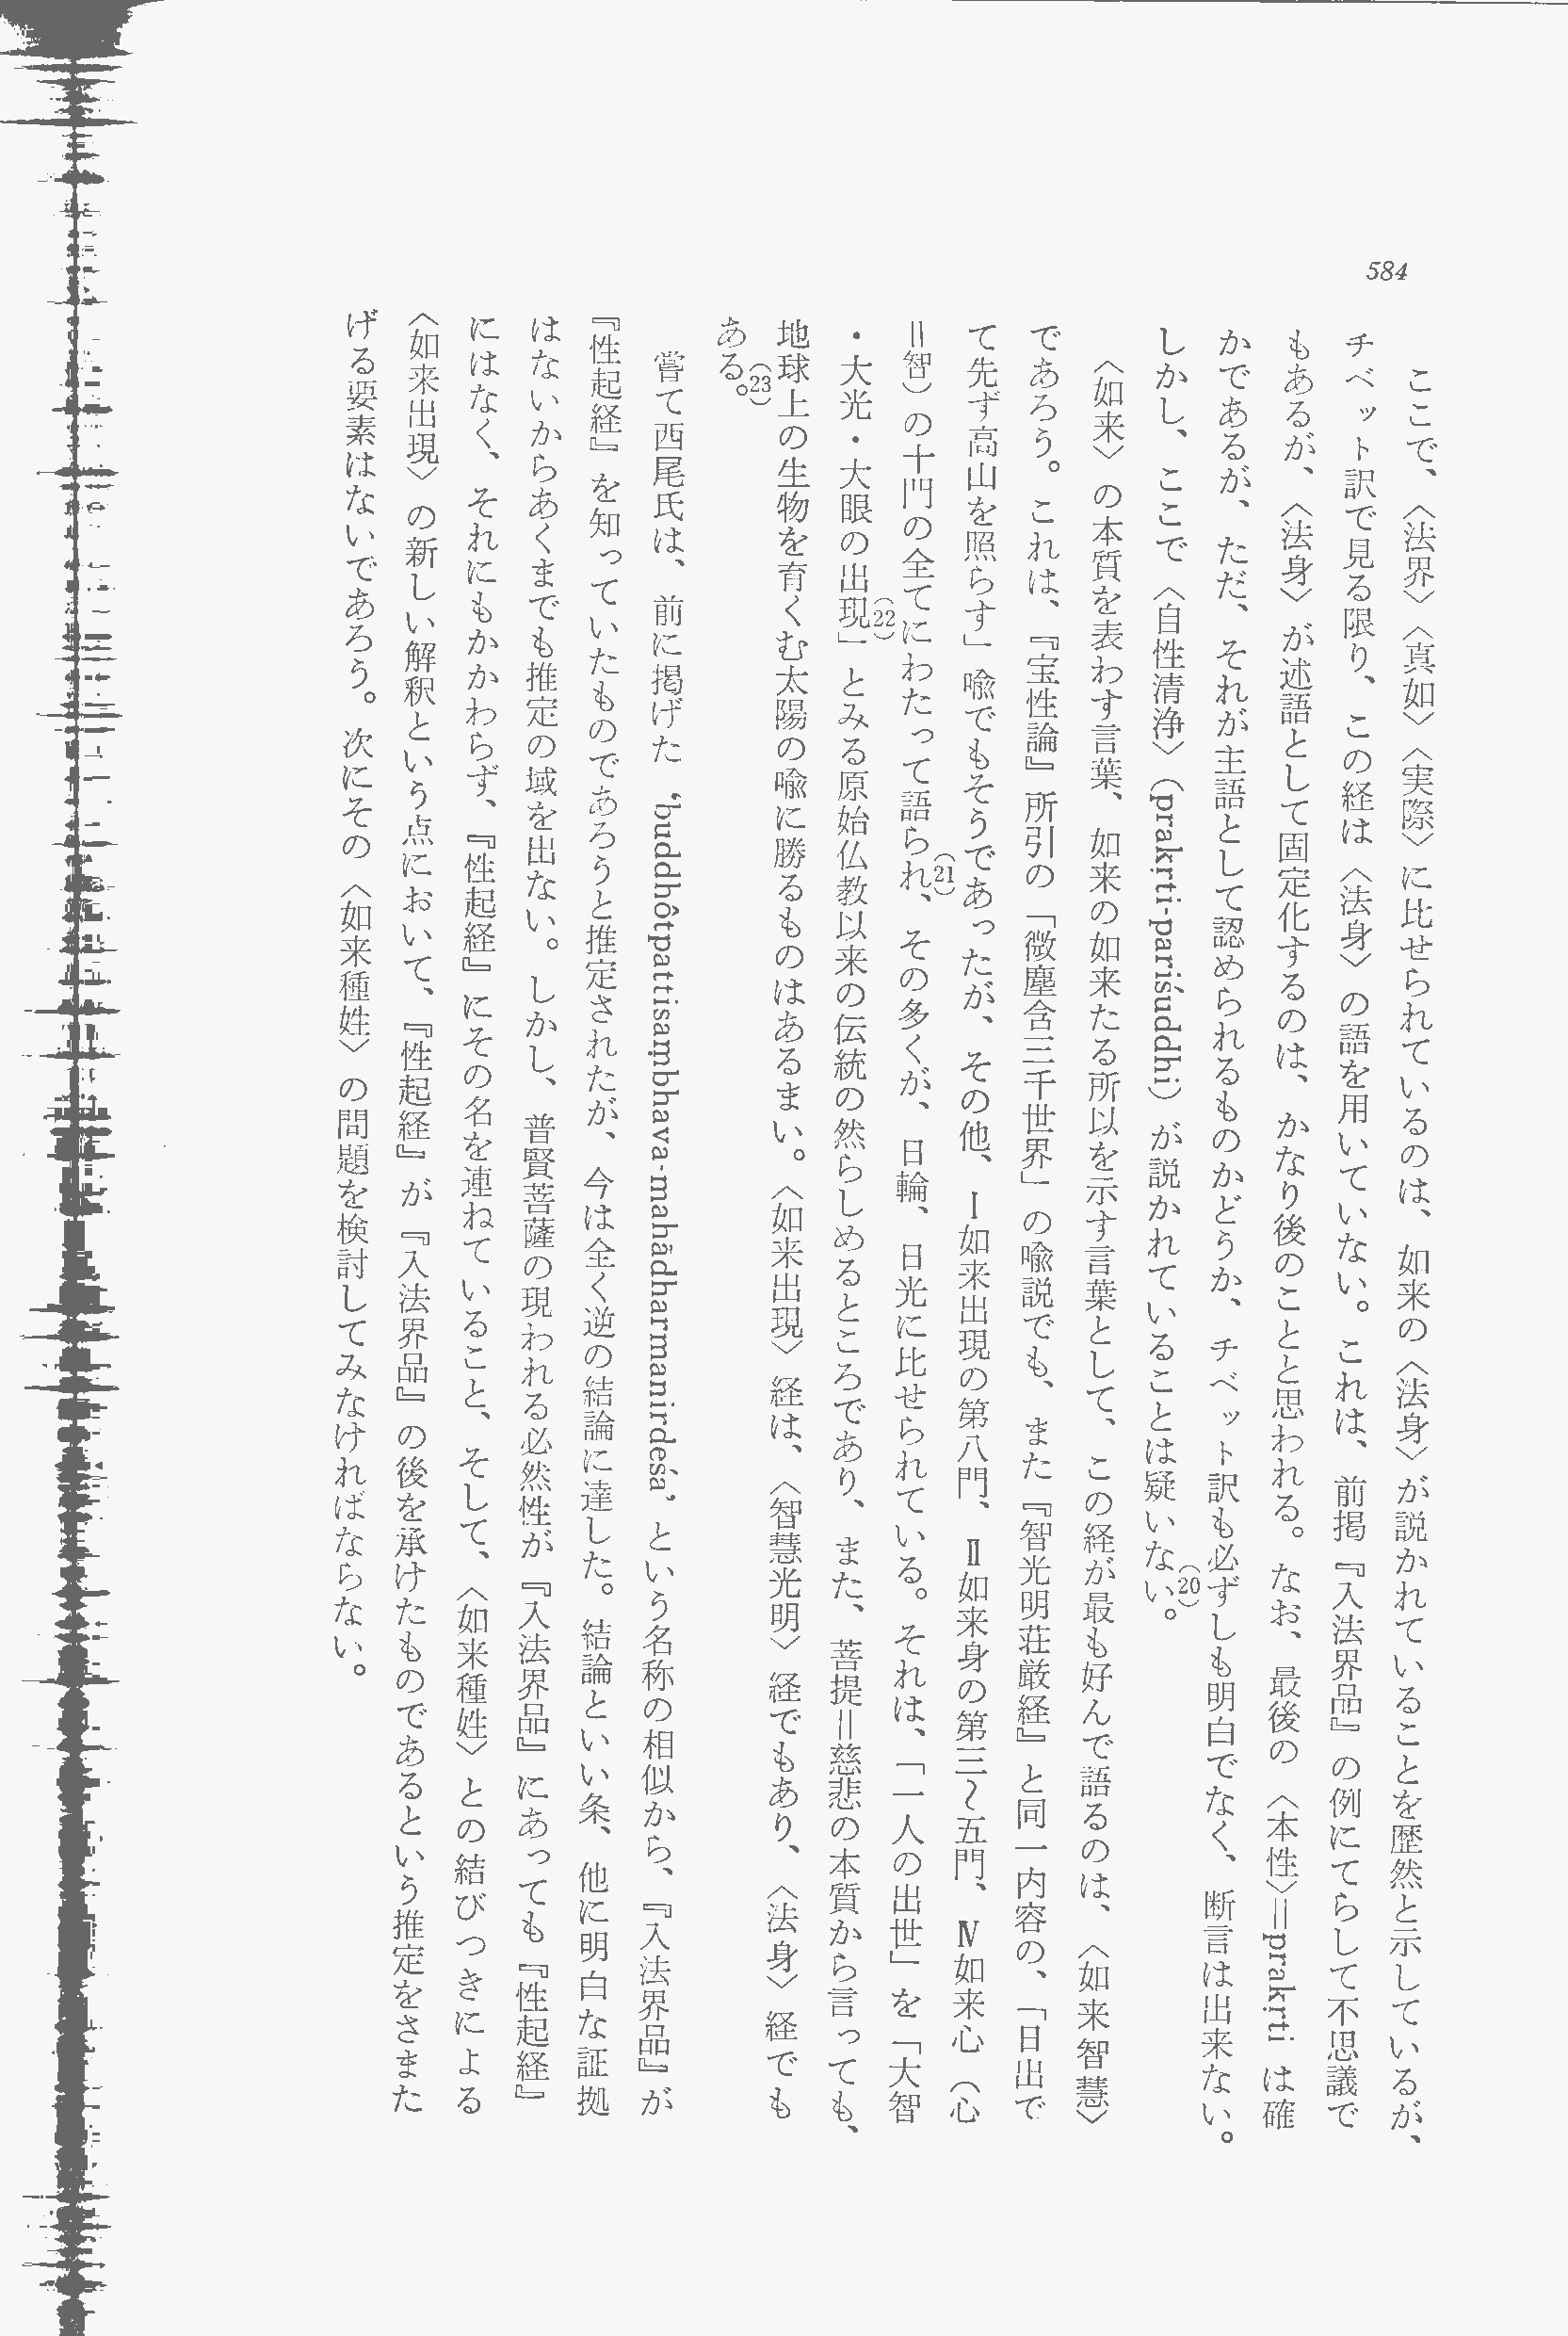 584
ここで、〈法界〉〈真如〉〈実際〉に比せられているのは、如来の〈法身〉が説かれていることを歴然と示しているが、
チベット訳で見る限り、この経は〈法身〉の語を用いていない。これは、前掲『入法界品』の例にてらして不思議で
もあるが、〈法身〉が述語として固定化するのは、かなり後のことと思われる。なお、最後の〈本性〉＝prakṛti は確
かであるが、ただ、それが主語として認められるものかどうか、チベット訳も必ずしも明白でなく、断言は出来ない。
しかし、ここで〈自性清浄〉(prakṛti-pariśuddhi) が説かれていることは疑いない。(20)
〈如来〉の本質を表わす言葉、如来の如来たる所以を示す言葉として、この経が最も好んで語るのは、〈如来智慧〉
であろう。これは、『宝性論』所引の「微塵含三千世界」の喩説でも、また『智光明荘厳経』と同一内容の、「日出で
て先ず高山を照らす」喩でもそうであったが、(21)その他、Ⅰ如来出現の第八門、Ⅱ如来身の第三〜五門、Ⅳ如来心（心
＝智）の十門の全てにわたって語られ、その多くが、日輪、日光に比せられている。それは、「一人の出世」を「大智
・大光・大眼の出現」(22)とみる原始仏教以来の伝統の然らしめるところであり、また、菩提＝慈悲の本質から言っても、
地球上の生物を育くむ太陽の喩に勝るものはあるまい。〈如来出現〉経は、〈智慧光明〉経でもあり、〈法身〉経でも
ある。(23)
嘗て西尾氏は、前に掲げた ‘buddhôtpattisaṃbhava-mahādharmanirdeśa’ という名称の相似から、『入法界品』が
『性起経』を知っていたものであろうと推定されたが、今は全く逆の結論に達した。結論といい条、他に明白な証拠
はないからあくまでも推定の域を出ない。しかし、普賢菩薩の現われる必然性が『入法界品』にあっても『性起経』
にはなく、それにもかかわらず、『性起経』にその名を連ねていること、そして、〈如来種姓〉との結びつきによる
〈如来出現〉の新しい解釈という点において、『性起経』が『入法界品』の後を承けたものであるという推定をさまた
げる要素はないであろう。次にその〈如来種姓〉の問題を検討してみなければならない。